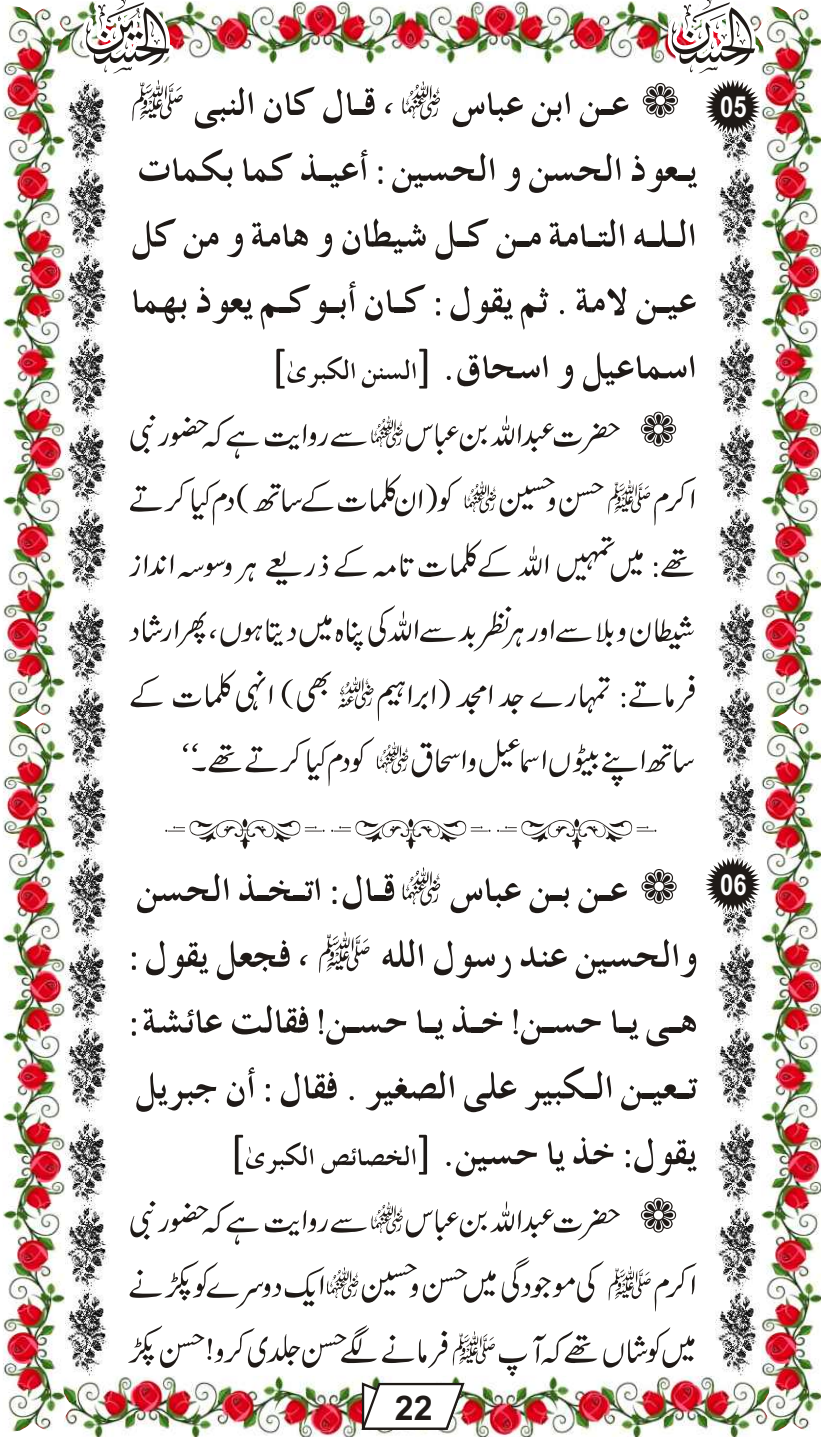 الحسنین الحسنین
05 ❁ عن ابن عباس رضی اللہ عنہما ، قال كان النبى ﷺ
يعوذ الحسن و الحسين : أعيذ كما بكمات
الله التامة من كل شيطان و هامة و من كل
عين لامة . ثم يقول : كان أبو كم يعوذ بهما
اسماعيل و اسحاق . [السنن الكبرىٰ]
❁ حضرت عبداللہ بن عباس رضی اللہ عنہما سے روایت ہے کہ حضور نبی
اکرم ﷺ حسن و حسین رضی اللہ عنہما کو (ان کلمات کے ساتھ) دم کیا کرتے
تھے: میں تمہیں اللہ کے کلمات تامہ کے ذریعے ہر وسوسہ انداز
شیطان و بلا سے اور ہر نظر بد سے اللہ کی پناہ میں دیتا ہوں، پھر ارشاد
فرماتے: تمہارے جد امجد (ابراہیم رضی اللہ عنہ بھی) انہی کلمات کے
ساتھ اپنے بیٹوں اسماعیل و اسحاق رضی اللہ عنہما کو دم کیا کرتے تھے۔‘‘
06 ❁ عن بن عباس رضی اللہ عنہما قال : اتخذ الحسن
والحسين عند رسول الله ﷺ ، فجعل يقول :
هى يا حسن! خذ يا حسن! فقالت عائشة :
تعين الكبير على الصغير . فقال : أن جبريل
يقول: خذ يا حسين . [الخصائص الكبرىٰ]
❁ حضرت عبداللہ بن عباس رضی اللہ عنہما سے روایت ہے کہ حضور نبی
اکرم ﷺ کی موجودگی میں حسن و حسین رضی اللہ عنہما ایک دوسرے کو پکڑنے
میں کوشاں تھے کہ آپ ﷺ فرمانے لگے حسن جلدی کرو! حسن پکڑ
22